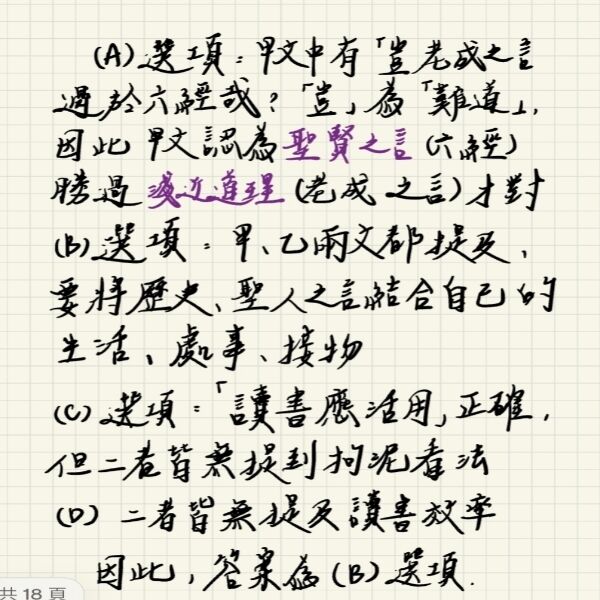 (A)選項：甲文中有「豈老成之言
過於六經哉？「豈」為「難道」，
因此甲文認為聖賢之言(六經)
勝過淺近道理(老成之言)才對
(B)選項：甲、乙兩文都提及，
要將歷史、聖人之言結合自己的
生活、處事、接物
(C)選項：「讀書應活用」正確，
但二者皆無提到拘泥看法
(D)二者皆無提及讀書效率
因此，答案為(B)選項.
共 18 頁